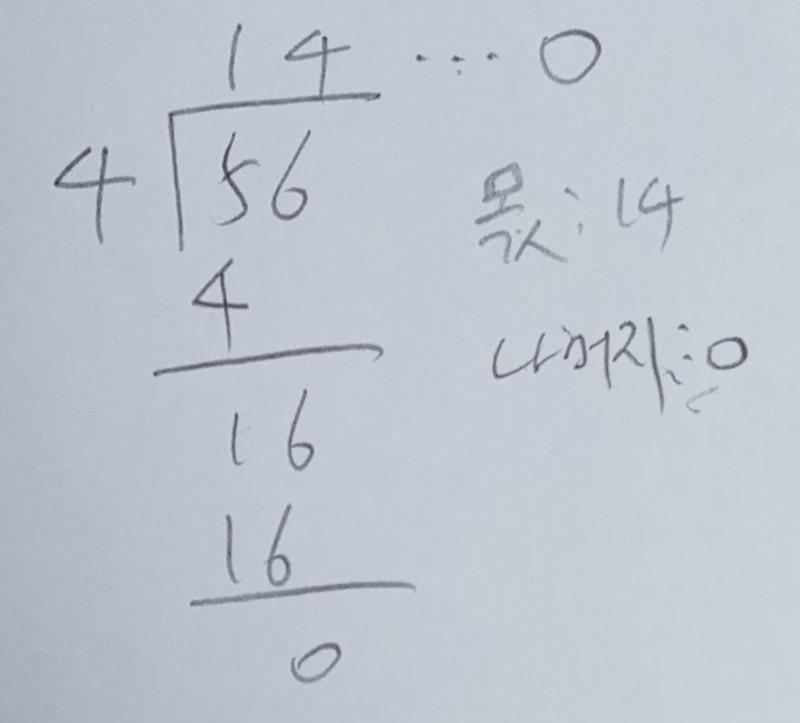 14 ... 0
4 56
몫 : 14
4
나머지 : 0
16
16
0